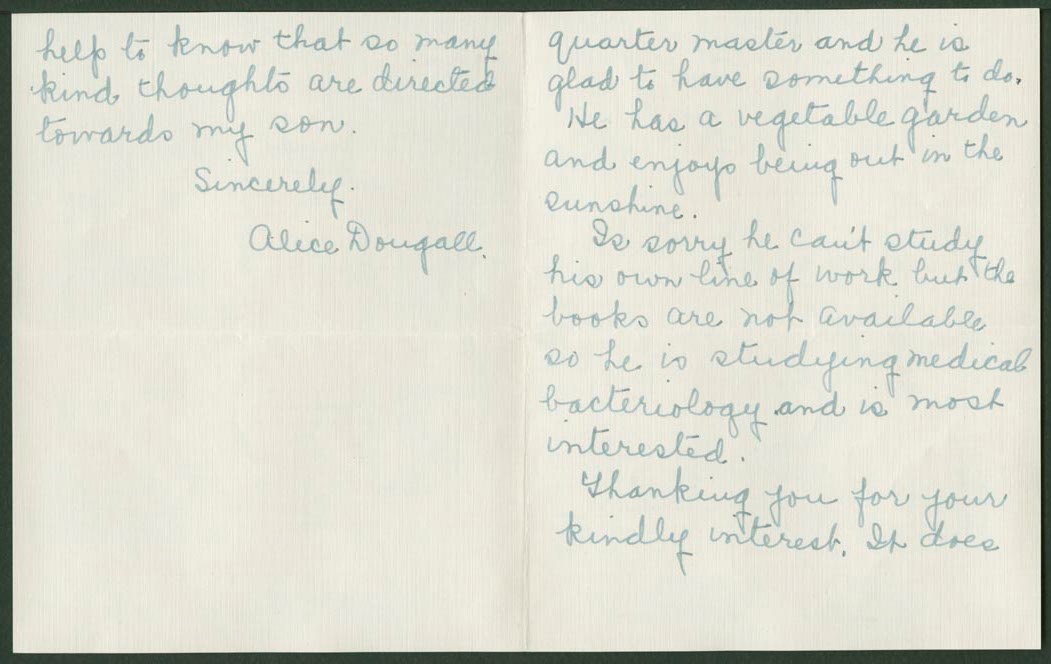 quarter master and he is
glad to have something to do.
He has a vegetable garden
and enjoys being out in the
sunshine.
Is sorry he can't study
his own line of work but the
books are not available
so he is studying medical
bacteriology and is most
interested.
Thanking you for your
kindly interest. It does
help to know that so many
kind thoughts are directed
towards my son.
Sincerely.
Alice Dougall.